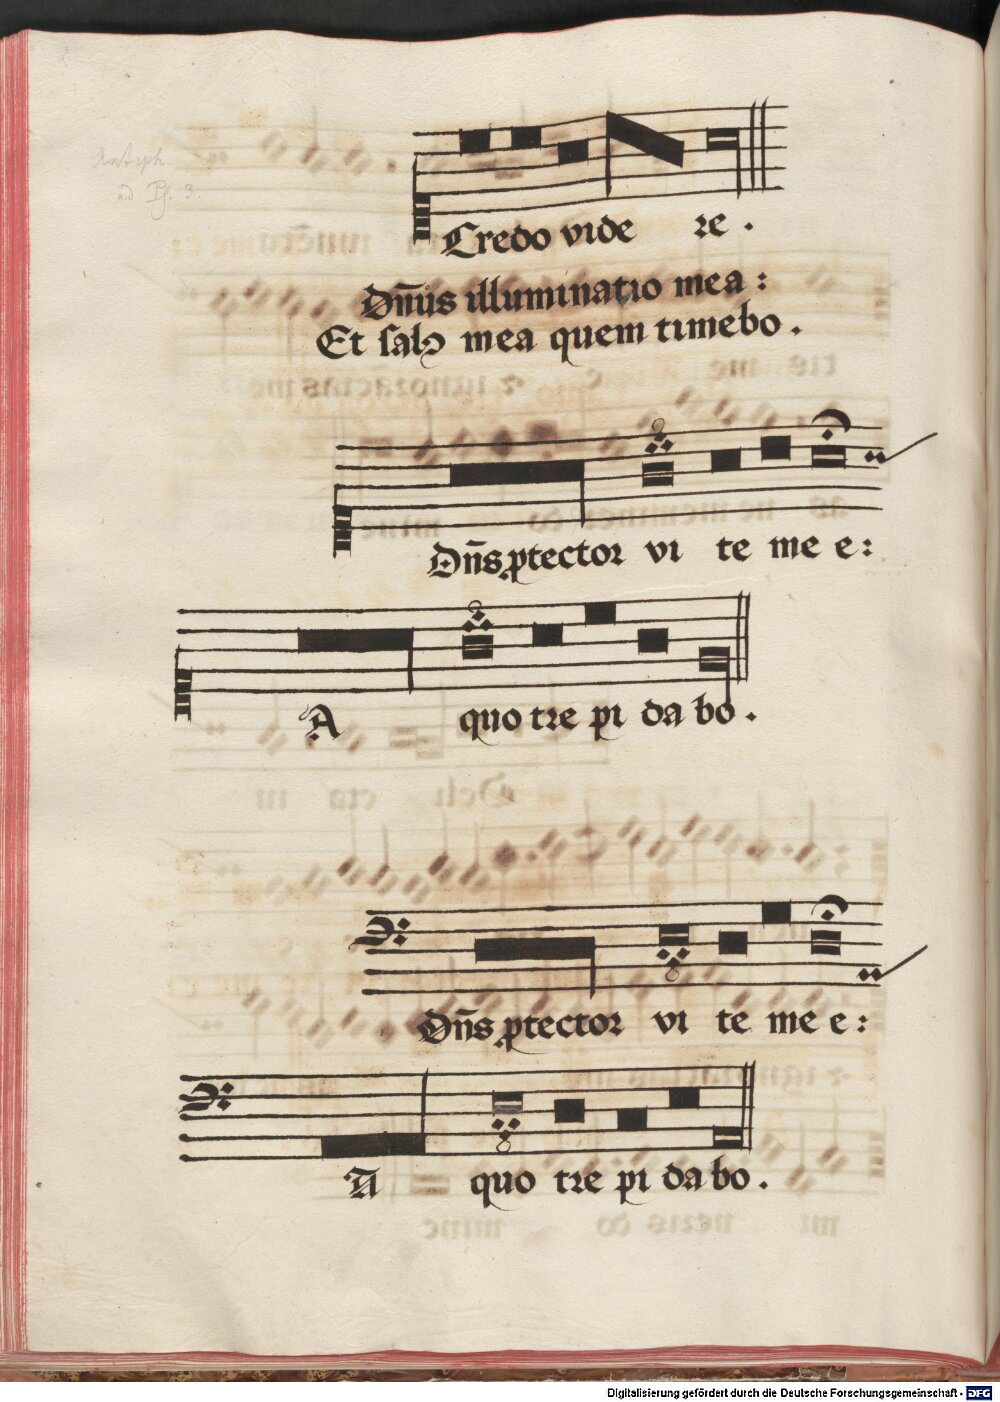 Antiph.
ad Ps. 3.
Credo vide re .
Dn̄us illuminatio mea :
Et salꝰ mea quem timebo .
Dn̄s ꝓtector vi te me e :
A quo tre pi da bo .
Dn̄s ꝓtector vi te me e :
A quo tre pi da bo .
Digitalisierung gefördert durch die Deutsche Forschungsgemeinschaft - DFG